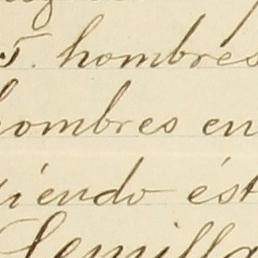 5. hombres
hombres en
iendo ést
Semilla